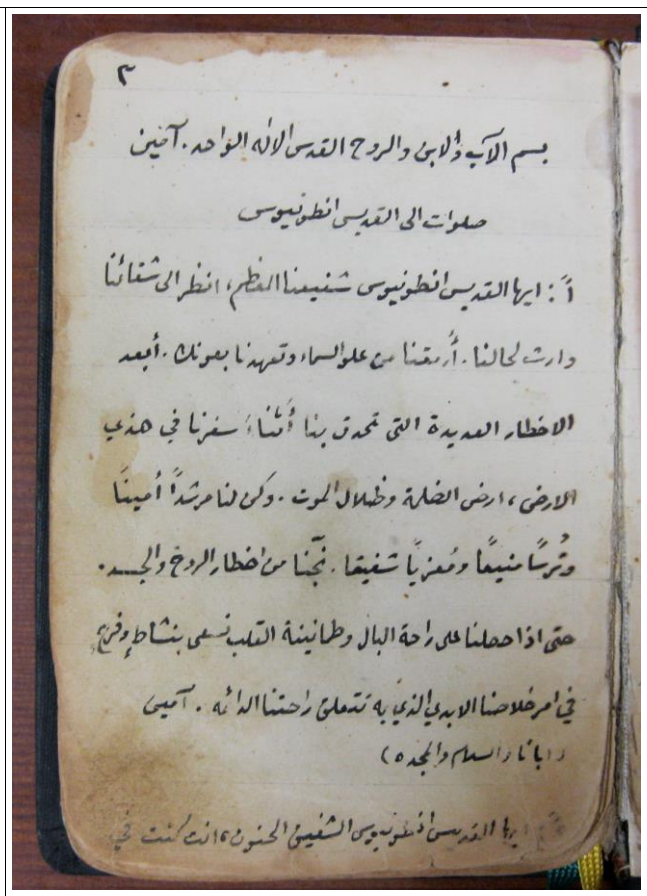 ٣
بسم الآب والابن والروح القدس الاله الواحد. آمين
صلوات الى القديس انطونيوس
أً: ايها القديس انطونيوس شفيعنا المعظم، انظر الى شقائنا
وارث لحالنا. أُرمقنا من علو السماء وتعهدنا بعونك. أبعد
الاخطار العديدة التي تحدق بنا أَثناءَ سفرنا في هذه
الارض، ارض الظلمة وظلال الموت. وكن لنا مرشداً أميناً
وتُرسًا منيعًا ومُعزيًا شفيقا. نجّنا من اخطار الروح والجسد.
حتى اذا حصلنا على راحة البال وطمانينة القلب نسعى بنشاطٍ وفرحٍ
في امر خلاصنا الابدي الذي به تتعلق راحتنا الدائمه. آمين
(ابانا والسلام والمجد ٥)
ايها القديس انطونيوس الشفيق الحنون، انت كنت في